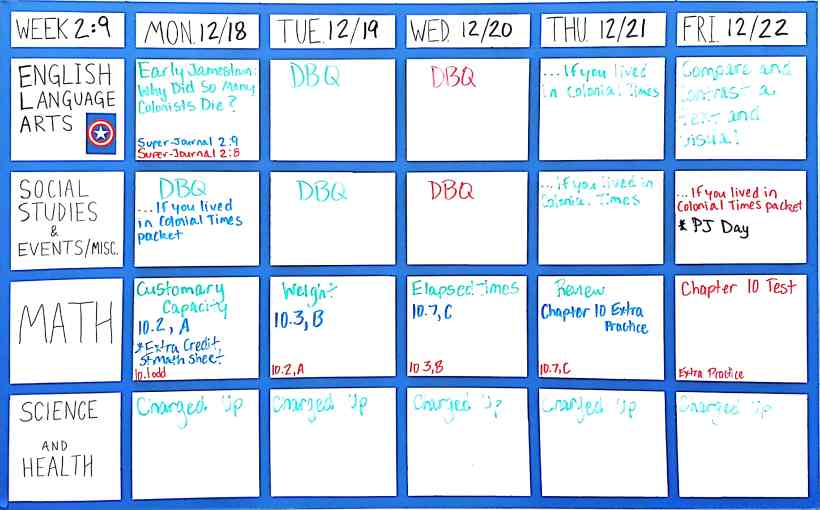 WEEK 2:9
MON. 12/18
TUE. 12/19
WED. 12/20
THU. 12/21
FRI. 12/22
ENGLISH
LANGUAGE
ARTS
Early Jamestown:
Why Did So Many
Colonists Die?
Super-Journal 2:9
Super-Journal 2:8
DBQ
DBQ
...If you lived
in Colonial Times
Compare and
contrast a
text and
visual!
SOCIAL
STUDIES
&
EVENTS/MISC.
DBQ
...If you lived
in Colonial Times
packet
DBQ
DBQ
...If you lived in
Colonial Times
...If you lived in
Colonial Times packet
* PJ Day
MATH
Customary
Capacity
10.2, A
*Extra Credit,
5* Math Sheet
10.1 odd
Weight
10.3, B
10.2, A
Elapsed Times
10.7, C
10.3, B
Review
Chapter 10 Extra
Practice
10.7, C
Chapter 10 Test
Extra Practice
SCIENCE
AND
HEALTH
Charged Up
Charged Up
Charged Up
Charged Up
Charged Up